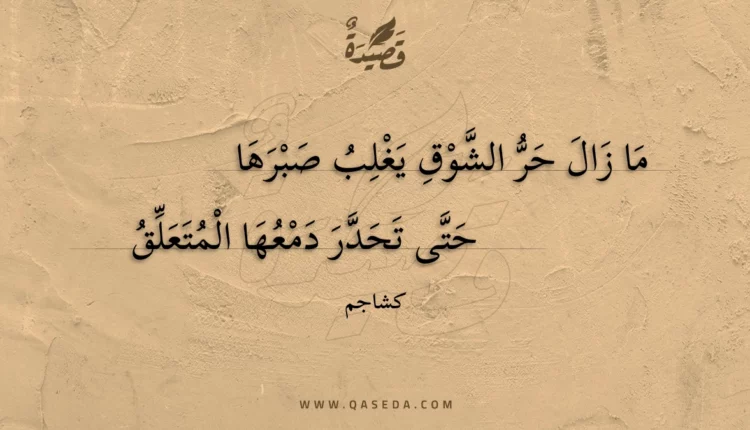 قَصِيدَةٌ
مَا زَالَ حَرُّ الشَّوْقِ يَغْلِبُ صَبْرَهَا
حَتَّى تَحَدَّرَ دَمْعُهَا الْمُتَعَلِّقُ
كشاجم
WWW.QASEDA.COM